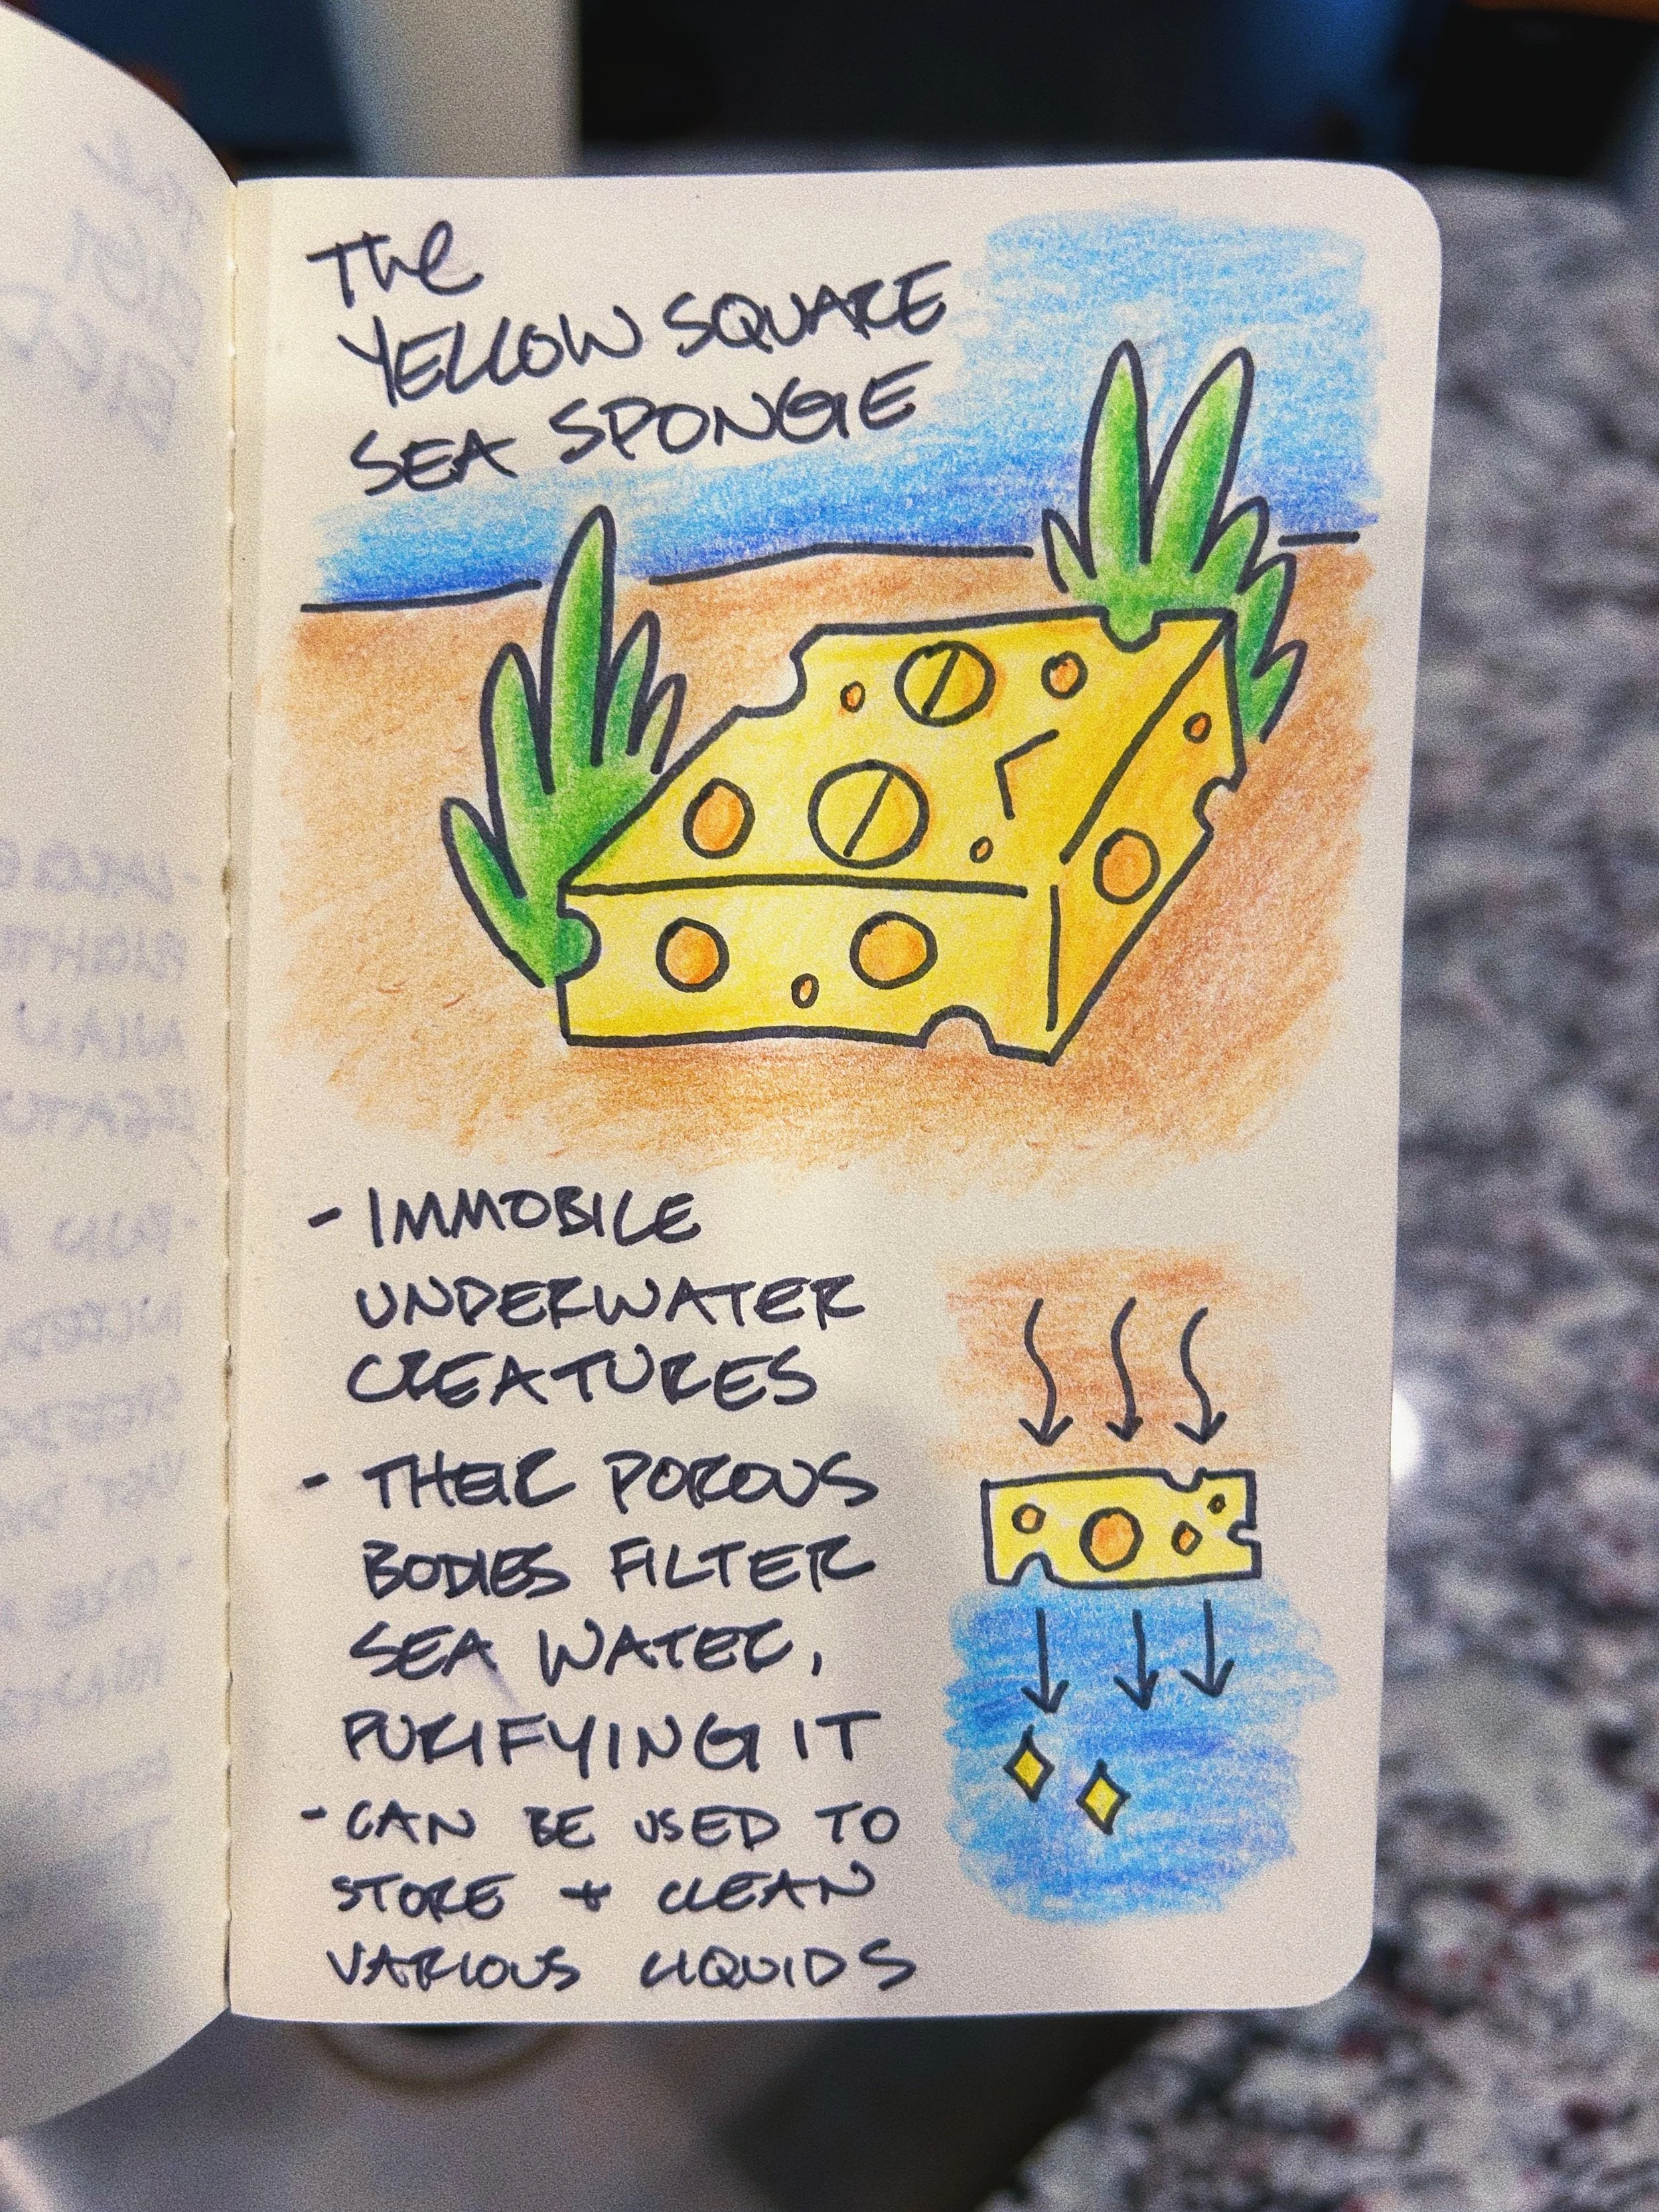 The
YELLOW SQUARE
SEA SPONGE
- IMMOBILE
UNDERWATER
CREATURES
- THEIR POROUS
BODIES FILTER
SEA WATER,
PURIFYING IT
- CAN BE USED TO
STORE + CLEAN
VARIOUS LIQUIDS